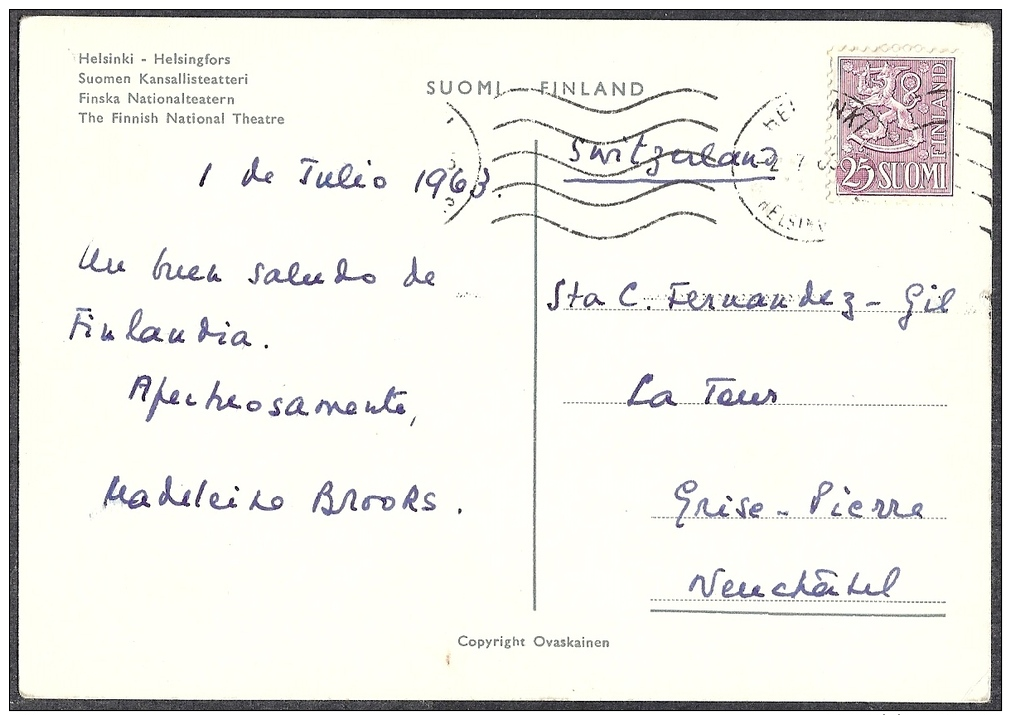 Helsinki - Helsingfors
Suomen Kansallisteatteri
Finska Nationalteatern
The Finnish National Theatre
SUOMI - FINLAND
1 de Julio 1963.
Un buen saludo de
Finlandia.
Afectuosamente,
Madeleine BROOKS.
FINLAND
25 SUOMI
Switzerland
Sta C. Fernandez - Gil
La Tour
Grise - Pierre
Neuchâtel
Copyright Ovaskainen